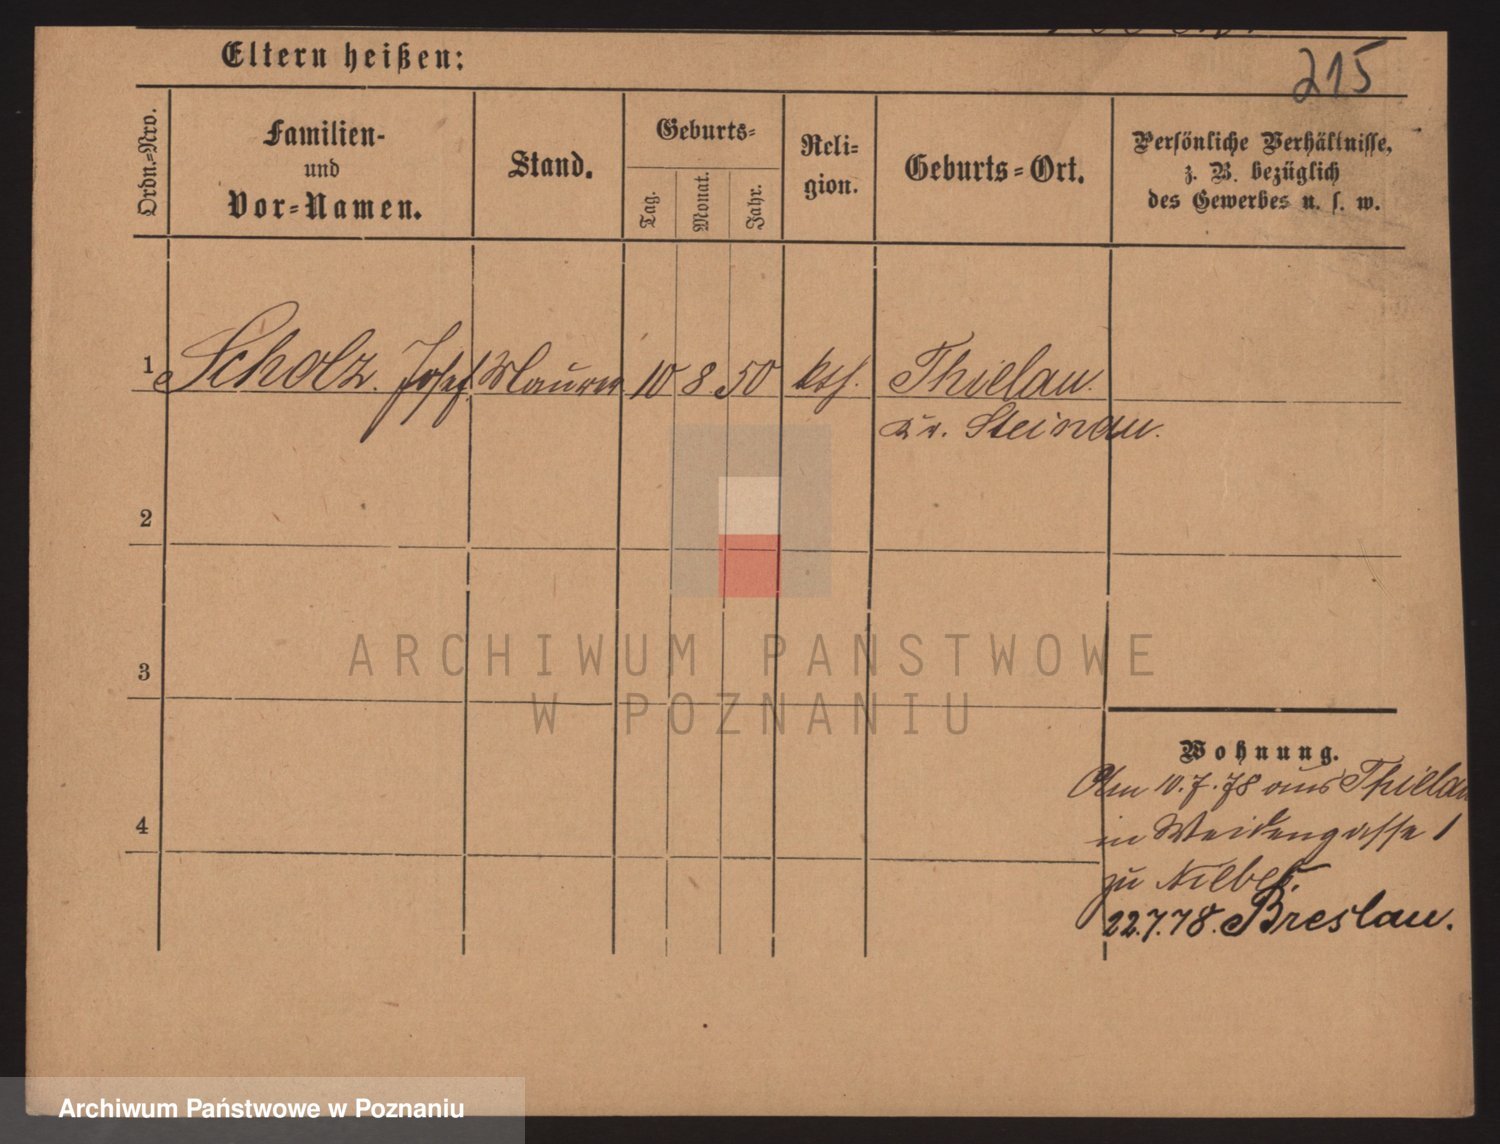 215
Eltern heißen:
Ordn.-Nro.
Familien-
und
Vor-Namen.
Stand.
Geburts-
Tag.
Monat.
Jahr.
Reli-
gion.
Geburts-Ort.
Persönliche Verhältnisse,
z. B. bezüglich
des Gewerbes u. s. w.
1 Scholz. Josef. Maurer 10 8. 50 kth. Thielau.
Kr. Steinau.
2
3
4
Wohnung.
Am 10.7.78 aus Thielau
in Weidengasse 1
zu
22.7.78. Breslau.
ARCHIWUM PAŃSTWOWE
W POZNANIU
Archiwum Państwowe w Poznaniu